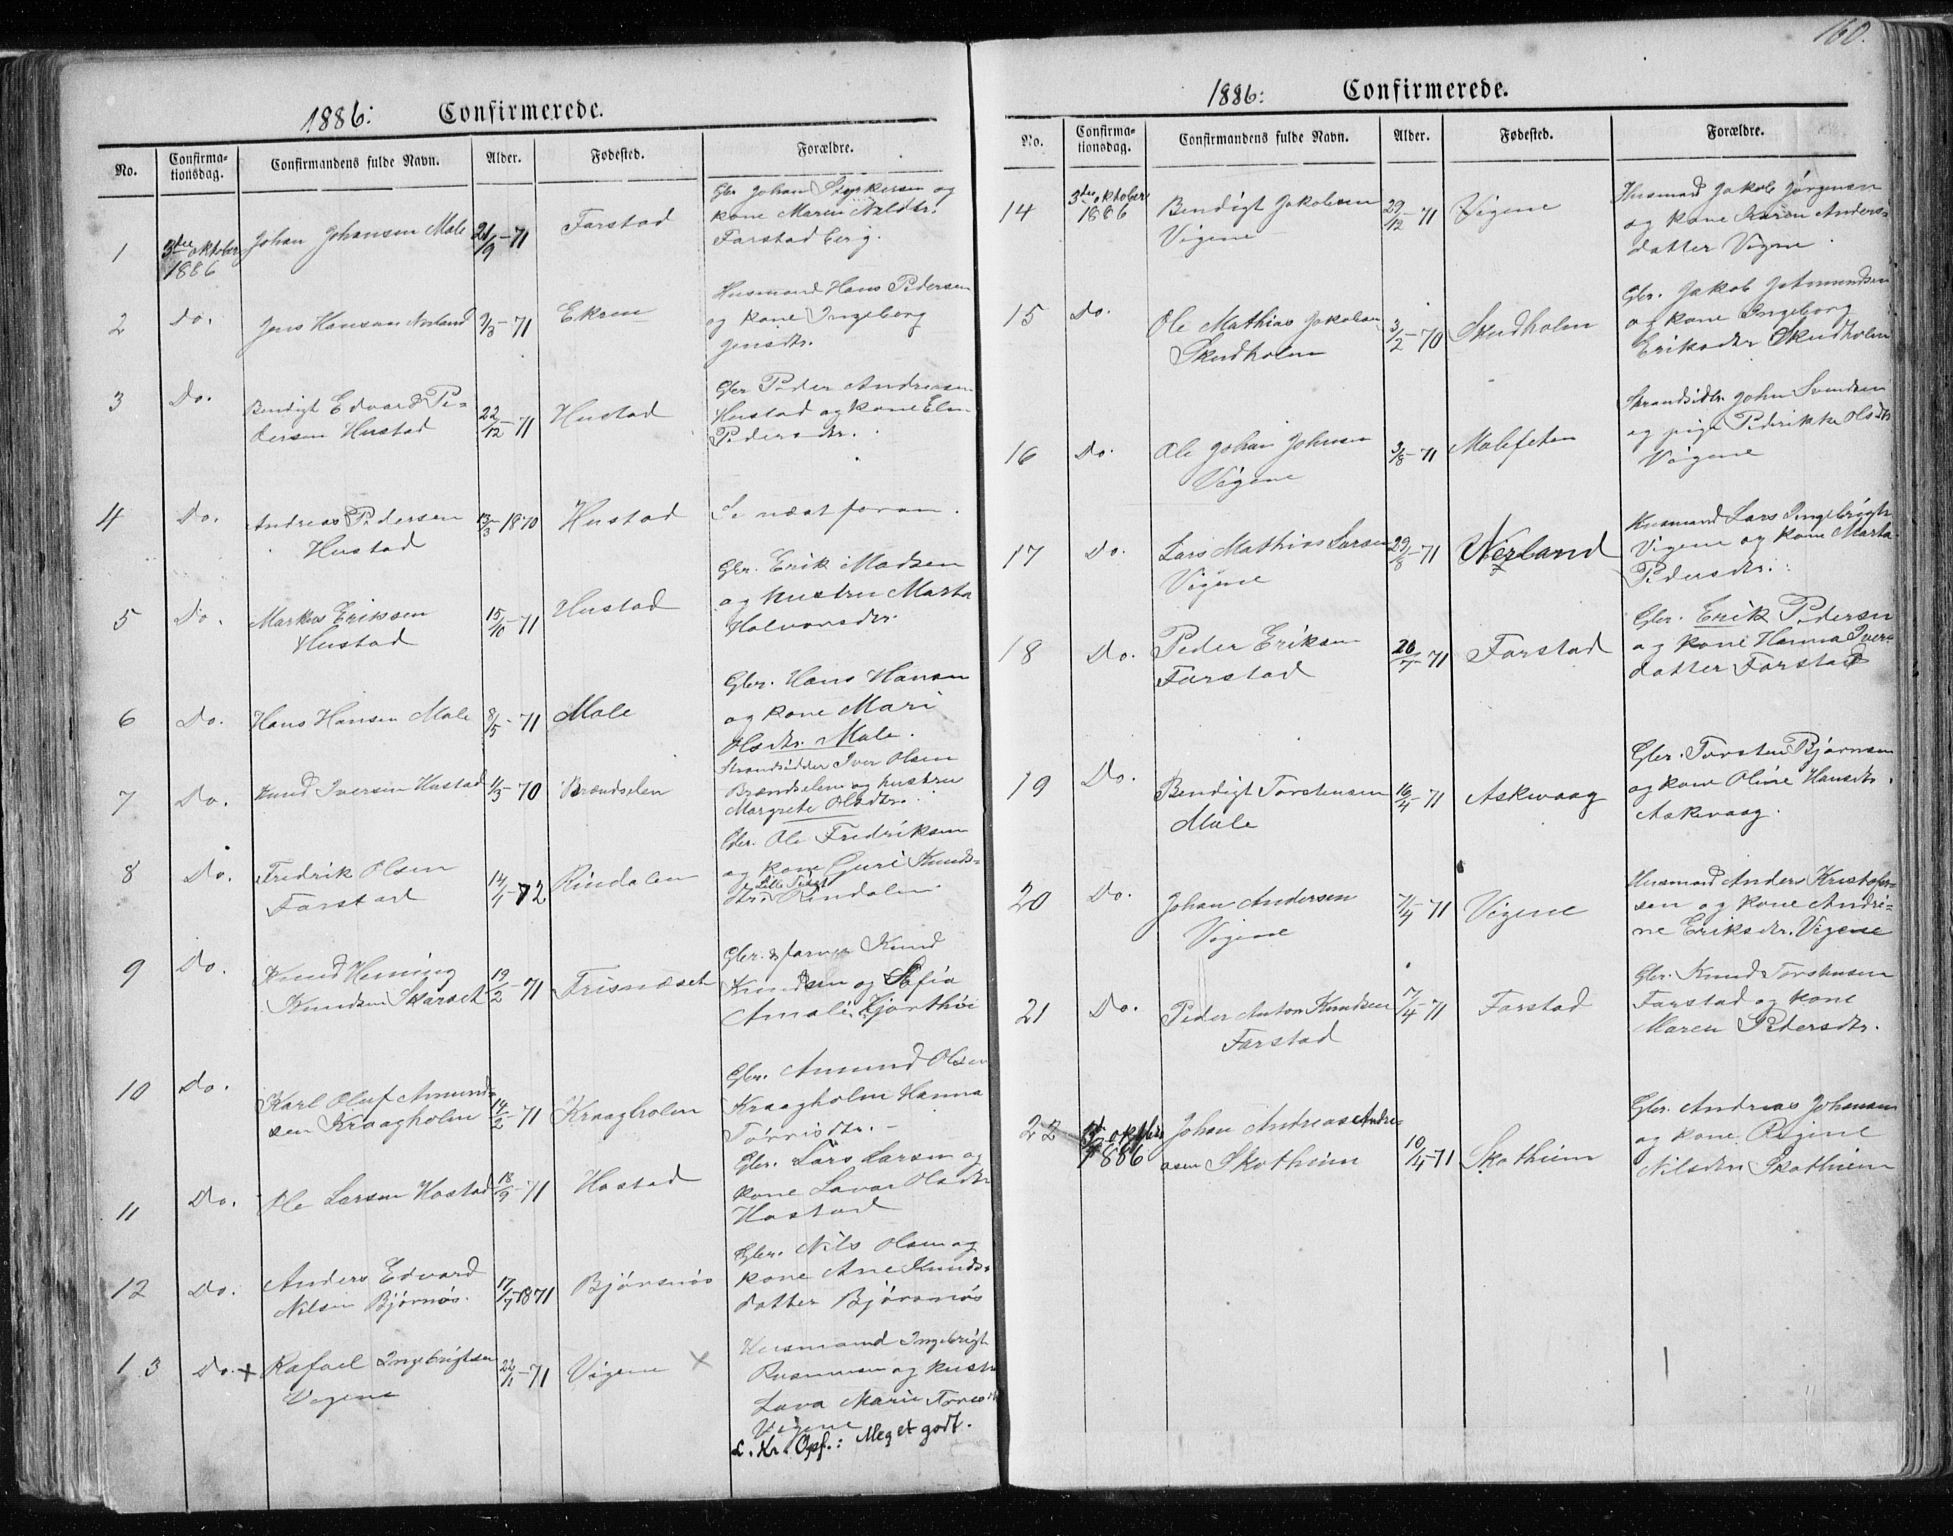 1886: Confirmerede.
No. Confirma-
tionsdag. Confirmandens fulde Navn. Alder. Fødested. Forældre.
1 3die oktober
1886 Johan Johansen Male 21/9-71 Farstad Gbr Johan
kone Maren Nilsdtr.
Farstadberg.
2 Do. Jens Hansen Nerland 9/3-71 Ekren Husmand Hans Pedersen
og kone Ingeborg
Jensdtr.
3 Do. Bendigt Edvard Pe-
dersen Hustad 22/12-71 Hustad Gbr Peder Andreasen
Hustad og kone Elen
Pedersdtr.
4 Do. Andreas Pedersen
Hustad 13/3 1870 Hustad Se næst foran.
5 Do. Markus Eriksen
Hustad 15/10-71 Hustad Gbr. Erik Madsen
og hustru Marta
Halvorsdtr.
6 Do. Hans Hansen Male 8/5-71 Male Gbr. Hans Hansen
og kone Mari
Olsdtr. Male.
7 Do. Knud Iversen Hustad 1/3-70 Brændselen Strandsidder Iver Olsen
Brændselen og hustru
Margrete Olsdtr.
8 Do. Fredrik Olsen
Farstad 14/1-72 Rindalen Gbr. Ole Fredriksen
og kone Guri Knuds-
dtr. Rindalen.
9 Do. Knud Henning
Knudsen Skarset 19/2-71 Frisnæset Gbr. & farver Knud
Knudsen og Sofia
Amalie Hjorthøi
10 Do. Karl Oluf Amund-
sen Kraagholm 14/2-71 Kraagholm Gbr. Amund Olsen
Kraagholm Hanna
Tørrisdtr.
11 Do. Ole Larsen Hostad 18/9-71 Hostad Gbr. Lars Larsen og
kone Lava Olsdtr
Hostad
12 Do. Anders Edvard
Nilsen Bjørnøs. 17/7-1871 Bjørnsnøs Gbr. Nils Olsen og
kone Ane Knuds-
datter Bjørnsnøs
13 Do. x Rafael Ingebrigtsen
Vigene 22/1-71 Vigene x Husmand Ingebrigt
Rasmusen og hustr
Lava Marie
Vigene
L. Kr. Opf.: Meget godt.
160.
1886: Confirmerede.
No. Confirma-
tionsdag. Confirmandens fulde Navn. Alder. Fødested. Forældre.
14 3die oktober
1886 Bendigt Jakobsen
Vigene 29/12-71 Vigene Husmand Jakob Jørgensen
og kone Karen Anders-
datter Vigene.
15 Do. Ole Mathias Jakobsen
Skudholm 3/2-70 Skudholm Gbr. Jakob Amundsen
og kone Ingeborg
Eriksdtr Skudholm
16 Do. Ole Johan Johnsen
Vigene 3/8-71 Malefeten Strandsidr. John Svendsen
og pige Pedrikke Olsdtr
Vigene
17 Do. Lars Mathias Larsen
Vigene 29/8-71 Nerland Husmand Lars Ingebrigts
Vigene og kone Marta
Pedersdtr.
18 Do. Peder Eriksen
Farstad 20/7-71 Farstad Gbr. Erik Pedersen
og kone Hanna Iver-
datter Farstad
19 Do. Bendigt Torstensen
Male 16/4-71 Askevaag Gbr. Torsten Bjørnsen
og kone Oline Hansdtr.
Askevaag.
20 Do. Johan Andersen
Vigene 7/4-71 Vigene Husmand Anders Kristofer-
sen og kone Andri-
ne Eriksdtr. Vigene
21 Do. Peder Anton Knudsen
Farstad 7/4-71 Farstad Gbr. Knud Torstensen
Farstad og kone
Maren Pedersdtr.
22 3d oktober
1886 Johan Andreas Andre-
asen Skotheim 10/4-71 Skotheim Gbr. Andreas Johansen
og kone Regine
Nilsdtr Skotheim